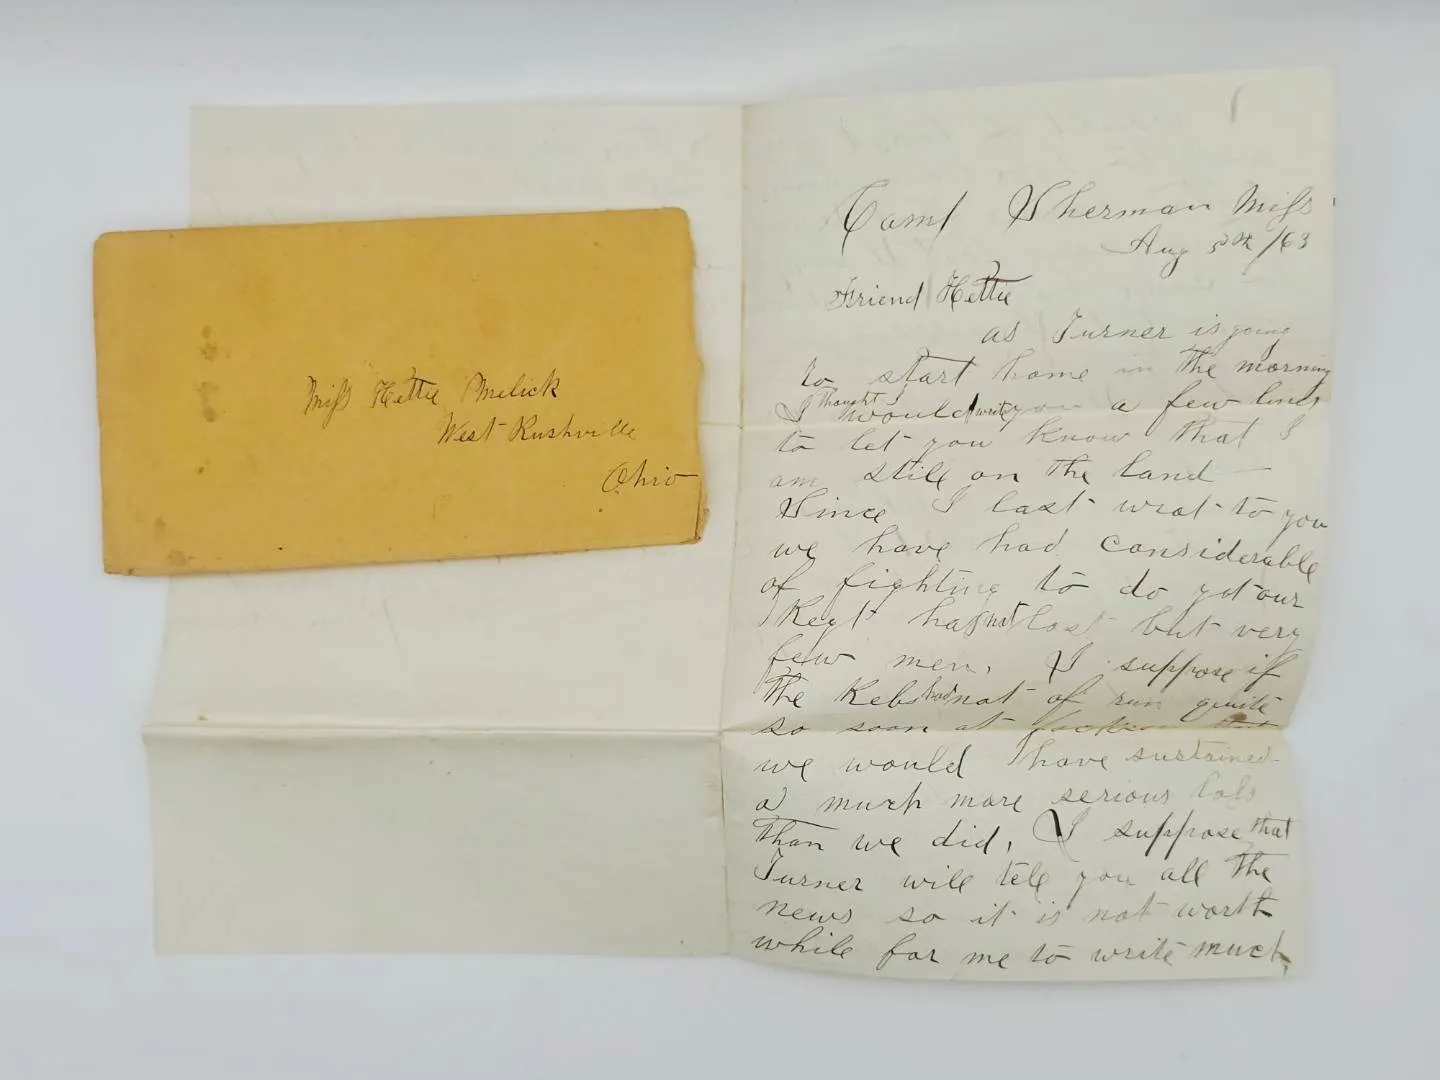 Miss Hettie Melick
West Rushville
Ohio
Camp Sherman Miss
Aug 5th /63
Friend Hettie
as Turner is going
to start home in the morning
I thought I would write you a few lines
to let you know that I
am still on the land —
Since I last wrat to you
we have had considerable
of fighting to do yet our
Regt has not lost but very
few men, I suppose if
the Rebs had not of run quite
so soon at Jackson that
we would have sustained
a much more serious loss
than we did, I suppose that
Turner will tell you all the
news so it is not worth
while for me to write much,